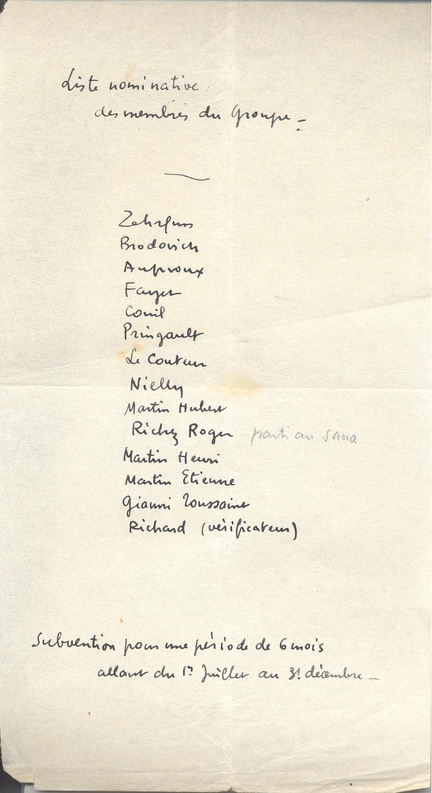 Liste nominative
des membres du Groupe -
Zehrfuss
Brodovich
Auproux
Fayet
Couil
Pringault
Le Couteur
Nielly
Martin Hubert
Richez Roger parti au Sana
Martin Henri
Martin Etienne
Gianni Toussaint
Richard (vérificateur)
Subvention pour une période de 6 mois
allant du 1er Juillet au 31 décembre -